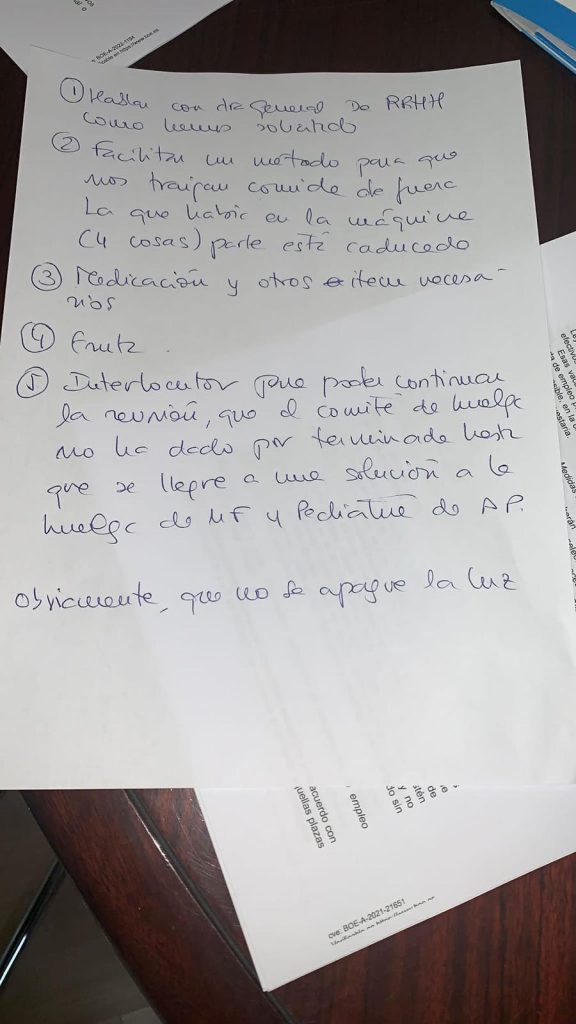 cve: BOE-A-2022-1184
① Hablar con dra General De RRHH
como hemos solicitado
② Facilitar un método para que
nos traigan comida de fuera
La que había en la máquina
(4 cosas) parte está caducado
③ Medicación y otros item necesa-
rios
④ Fruta.
⑤ Interlocutor para poder continuar
la reunión, que el comité de huelga
no ha dado por terminada hasta
que se llegue a una solución a la
huelga de MF y Pediatría de AP.
Obviamente, que no se apague la luz
efectivo
Esas
de empleo
en la
Medidas
acuerdo con
uellas plazas
empleo
do sin
y no
estén
de
cve: BOE-A-2021-21651